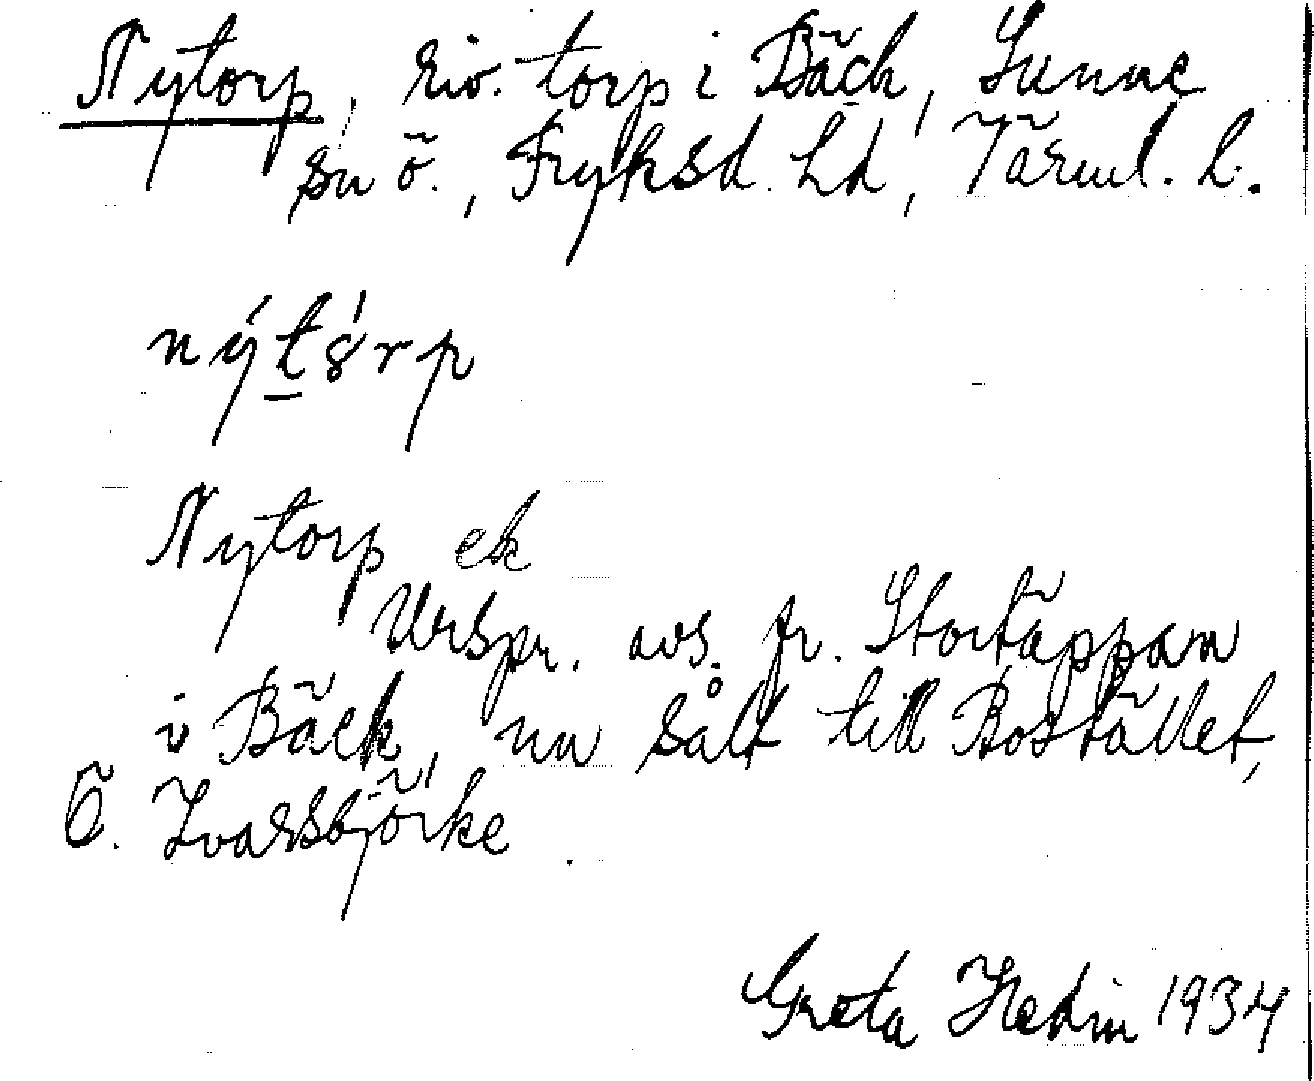 Nytorp, riv. torp i Bäck, Sunne
sn ö., Fryksd. hd, Värml. l.
nýt8́rp
Nytorp ek
Urspr. avs. fr. Stortäppan
i Bäck, nu sålt till Bostället,
Ö. Ivarsbjörke
Greta Hedin 1934